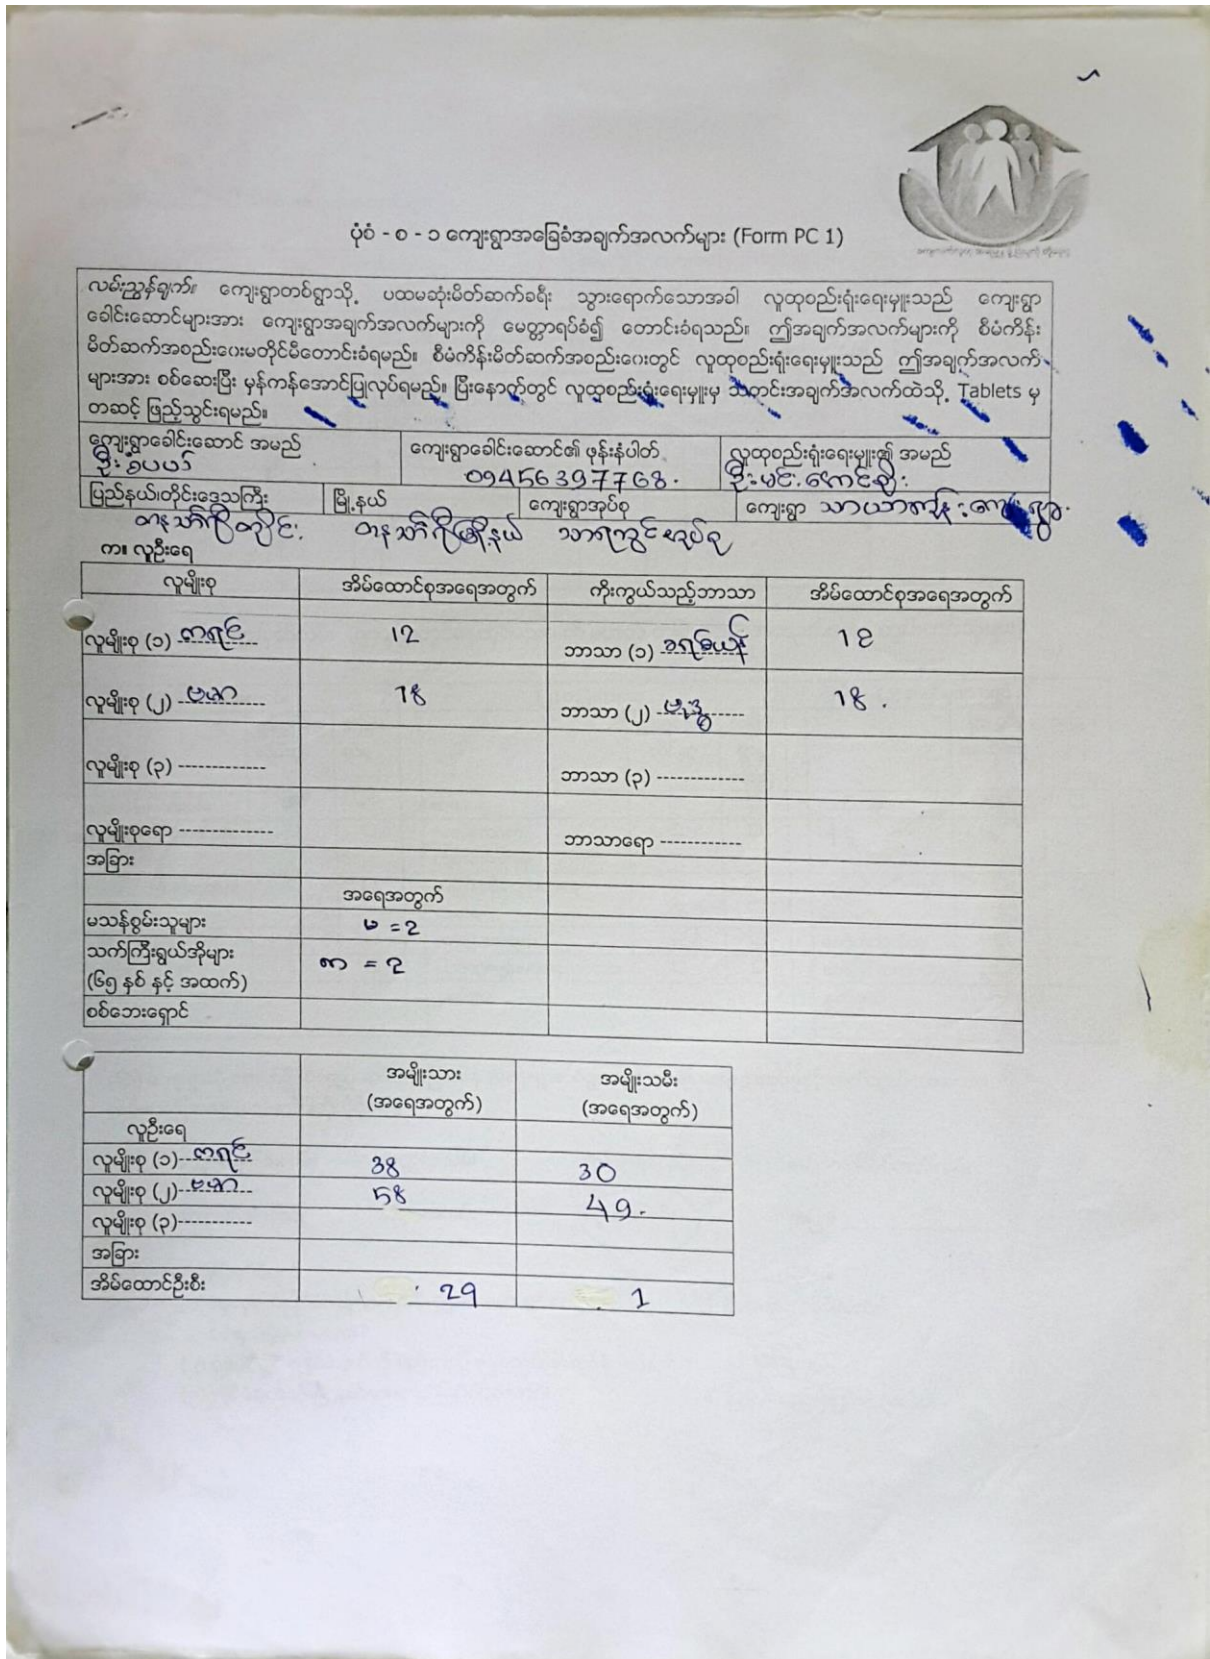 ပုံစံ - စ - ၁ ကျေးရွာအခြေခံအချက်အလက်များ (Form PC 1)
လမ်းညွှန်ချက်။ ကျေးရွာတစ်ရွာသို့ ပထမဆုံးမိတ်ဆက်ခရီး သွားရောက်သောအခါ လူထုစည်းရုံးရေးမှူးသည် ကျေးရွာ
ခေါင်းဆောင်များအား ကျေးရွာအချက်အလက်များကို မေတ္တာရပ်ခံ၍ တောင်းခံရသည်။ ဤအချက်အလက်များကို စီမံကိန်း
မိတ်ဆက်အစည်းဝေးမတိုင်မီတောင်းခံရမည်။ စီမံကိန်းမိတ်ဆက်အစည်းဝေးတွင် လူထုစည်းရုံးရေးမှူးသည် ဤအချက်အလက်
များအား စစ်ဆေးပြီး မှန်ကန်အောင်ပြုလုပ်ရမည်။ ပြီးနောက်တွင် လူထုစည်းရုံးရေးမှူးမှ သတင်းအချက်အလက်ထဲသို့ Tablets မှ
တဆင့် ဖြည့်သွင်းရမည်။
ကျေးရွာခေါင်းဆောင် အမည် ကျေးရွာခေါင်းဆောင်၏ ဖုန်းနံပါတ် လူထုစည်းရုံးရေးမှူး၏ အမည်
ဦး 09456397768. ဦးမင်း
ပြည်နယ်၊တိုင်းဒေသကြီး မြို့နယ် ကျေးရွာအုပ်စု ကျေးရွာ သာယာကုန်းကျေးရွာ.
တနင်္သာရီတိုင်း တနင်္သာရီမြို့နယ် သာရဘွင်အုပ်စု
က။ လူဦးရေ
လူမျိုးစု အိမ်ထောင်စုအရေအတွက် ကိုးကွယ်သည့်ဘာသာ အိမ်ထောင်စုအရေအတွက်
လူမျိုးစု (၁) ကရင် 12 ဘာသာ (၁) ခရစ်ယန် 12
လူမျိုးစု (၂) ဗမာ 18 ဘာသာ (၂) ဗုဒ္ဓ 18 .
လူမျိုးစု (၃) ------------- ဘာသာ (၃) -------------
လူမျိုးစုရော -------------- ဘာသာရော ------------
အခြား
အရေအတွက်
မသန်စွမ်းသူများ မ = 2
သက်ကြီးရွယ်အိုများ ကာ = 2
(၆၅ နှစ် နှင့် အထက်)
စစ်ဘေးရှောင်
အမျိုးသား အမျိုးသမီး
(အရေအတွက်) (အရေအတွက်)
လူဦးရေ
လူမျိုးစု (၁)--ကရင် 38 30
လူမျိုးစု (၂)--ဗမာ-- 58 49.
လူမျိုးစု (၃)-----------
အခြား
အိမ်ထောင်ဦးစီး 29 1